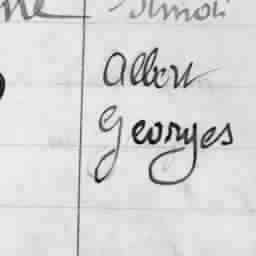 Albert
Georges